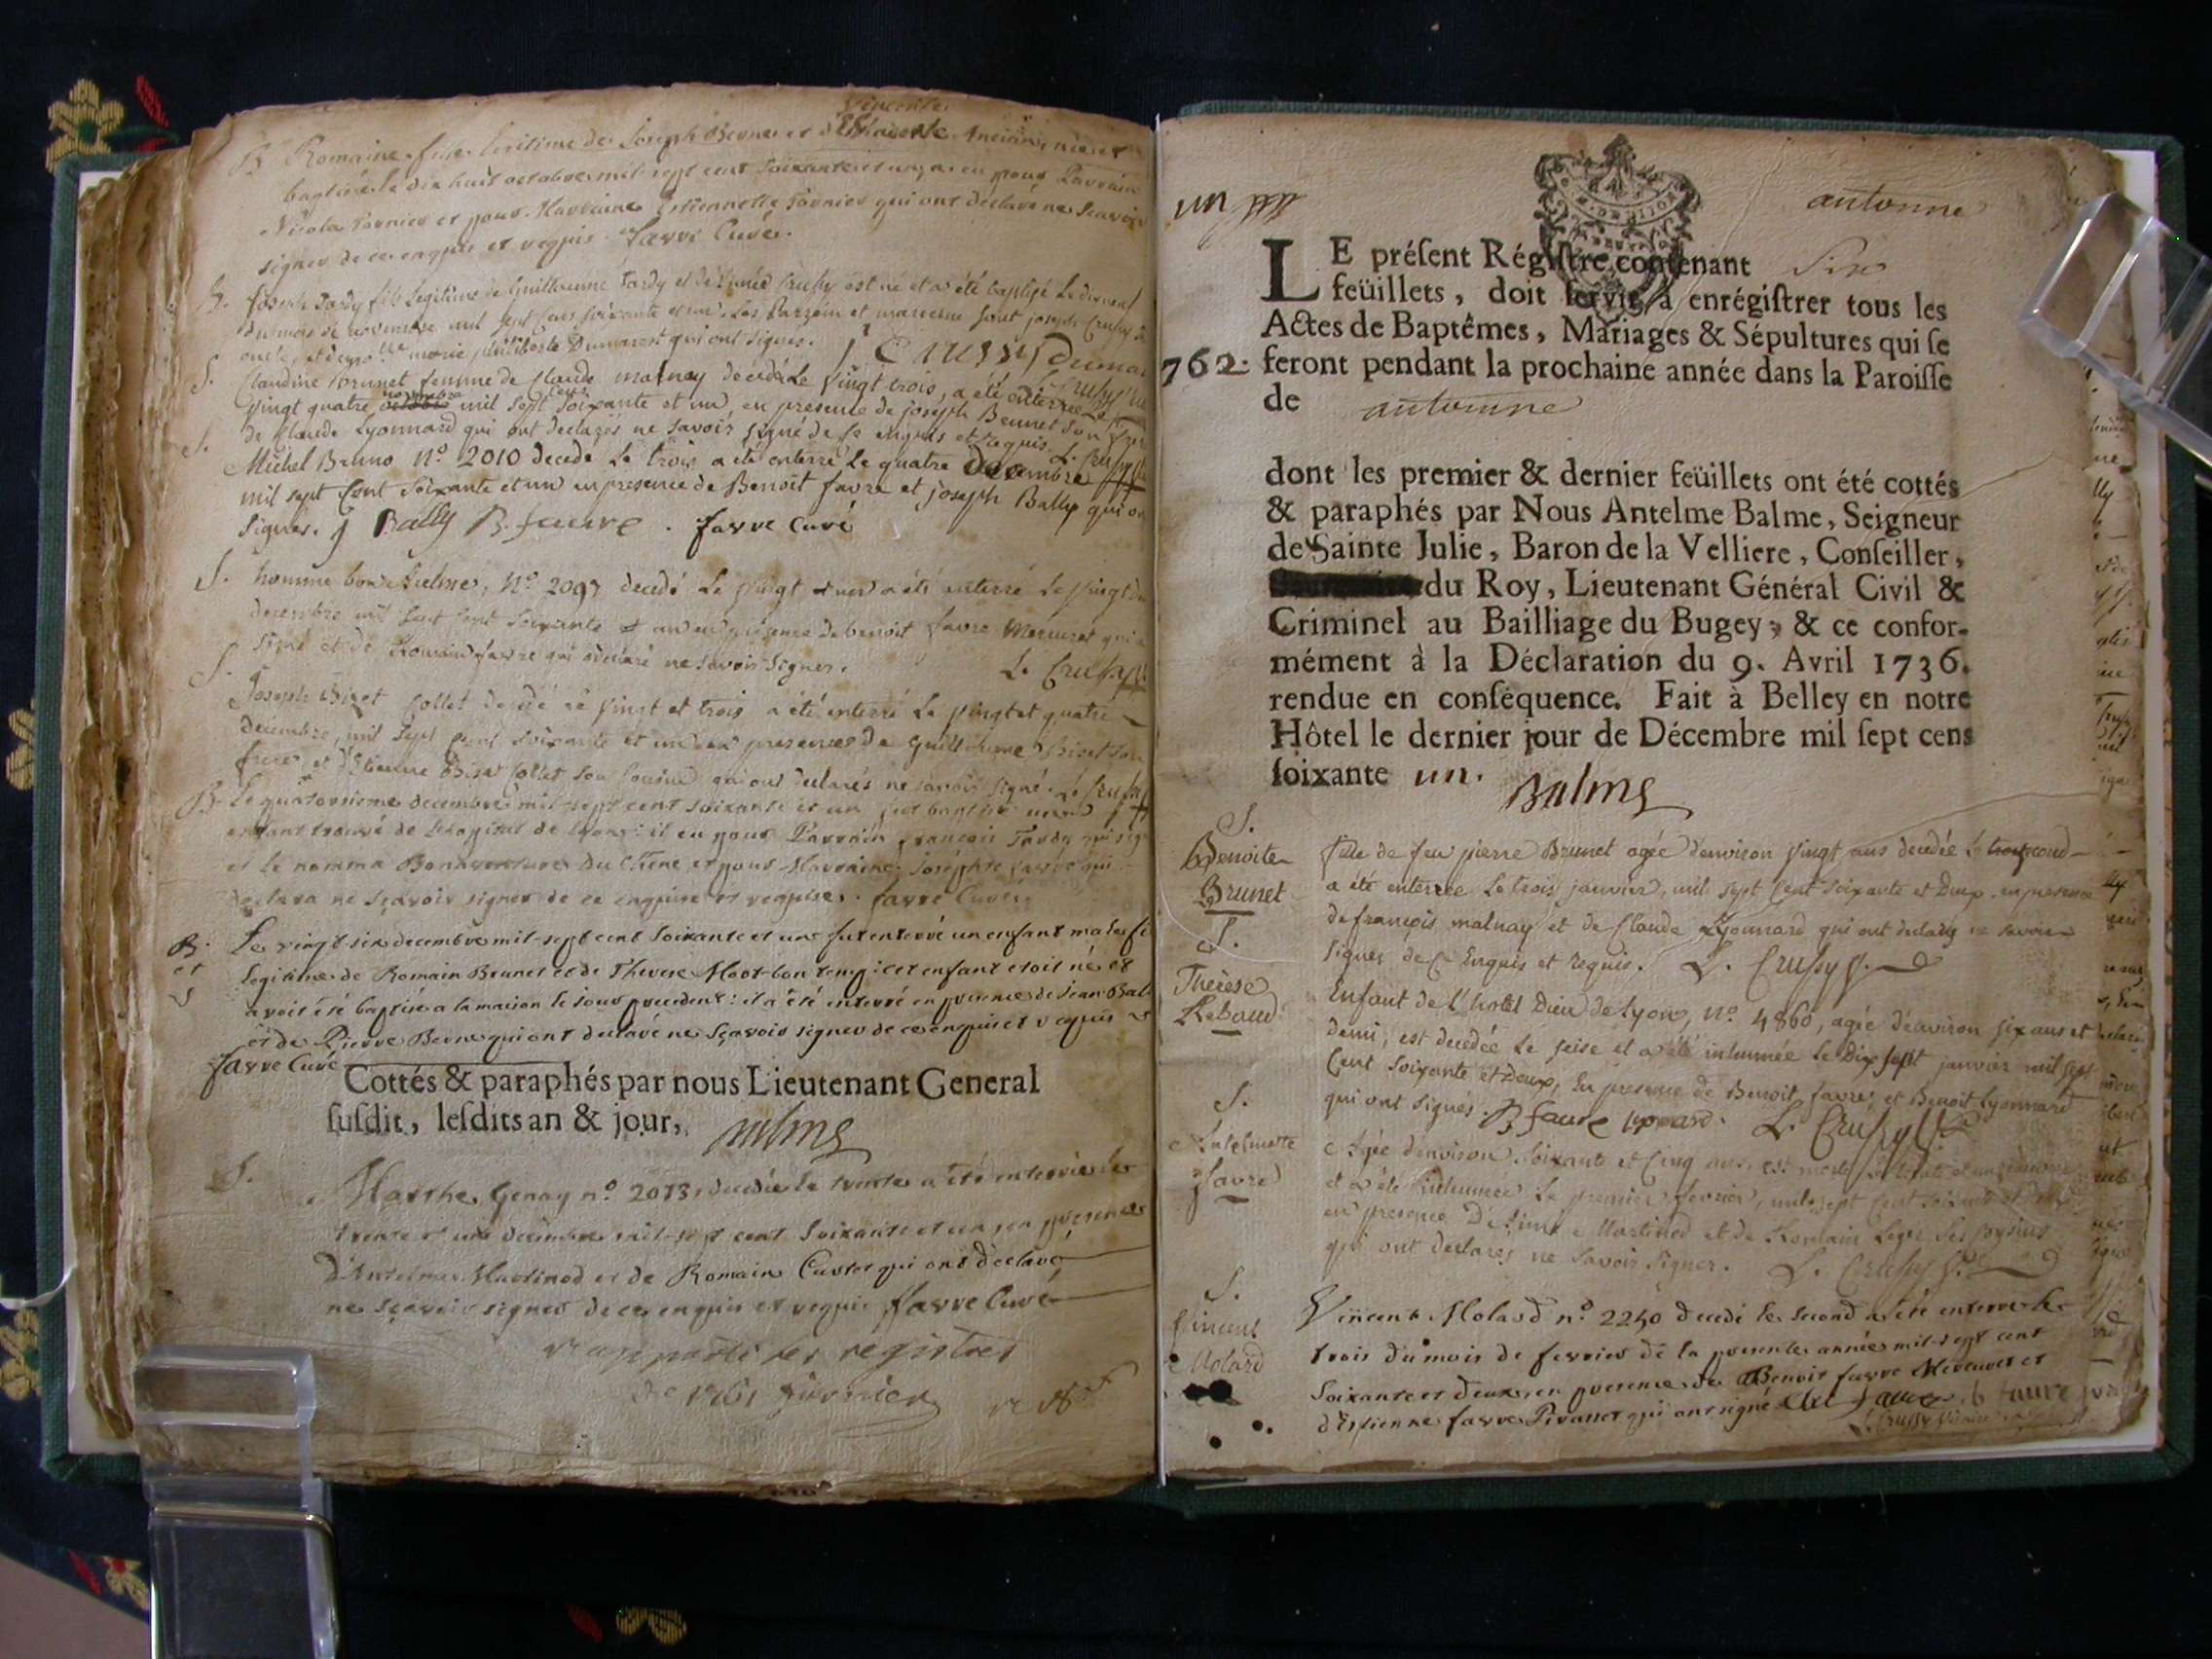 Vincente
B Romaine fille legitime de Joseph Berne et d' Ancian, née et
baptisée le dix huit octobre mil sept cent soixante et un, a eu pour Parrain
Nicolas Tornier et pour Marraine Estiennette Tornier qui ont déclaré ne scavoir
signer de ce enquis et requis. Favre Curé.
B. Joseph Tardy fils legitime de Guillaume Tardy et de Crussy est né et a été baptisé le dixneuf
du mois de novembre mil sept cens soixante et un. Les Parrein et marreine sont joseph Crussy
oncle, et demo.lle marie Dumarest qui ont signés.
J Crussy Dumar
S. Claudine brunet femme de Claude malnay decedée Le vingt trois, a été enterrée Le
vingt quatre novembre mil sept Cent soixante et un, en presence de joseph Brunet son
de Claude Lyonnard qui ont declarés ne savoir signé de Ce enquis et requis. L. Crussy
S. Michel Bruno N.º 2010 decedé Le trois a été enterré Le quatre Decembre
mil sept Cent soixante et un en presence de Benoit favre et joseph Bally qui on
signés. J Bally B. faure . favre Curé
S. homme bon N.º 2097 decedé Le vingt et un a été enterré Le vingt
decembre mil sept cent soixante et un en présence de benoit favre Mercuret qui a
signé et de Romain favre qui a déclaré ne savoir signer. L. Crussy
S. Joseph Bizet Collet decedé Le vingt et trois a été enterré Le vingt et quatre
decembre, mil sept Cent soixante et un en presence de Guillaume Bizet son
frere, et d'Etienne Bizet Collet son Cousin qui ont declarés ne savoir signé. L. Crussy
B. Le quatorsieme decembre mil sept cent soixante et un fut baptisé un
enfant trouvé de L'hopital de Lyon: il eu pour Parrain francois Tardy qui sig
et le nomma Bonaventure Du Chene et pour Marraine Joséphte favre qui
declara ne sçavoir signer de ce enquise et requise. favre Curé
B. et S Le vingt six decembre mil sept cent soixante et un fut enterré un enfant male fi
legitime de Romain Brunet et de Therese Moot-bon temp: cet enfant etoit né et
avoit été baptisé a la maison le jour precedent: il a été enterré en presence de Jean Bal
et de Pierre Berne qui ont declaré ne sçavoir signer de ce enquis et requis
favre Curé
Cottés & paraphés par nous Lieutenant General
susdit, lesdits an & jour,
Balme
S. Marthe Genay n.º 2073, decedée le trente a été enterrée le
trente et un decembre mil sept cent soixante et un en presence
d'Antelme Martinod et de Romain Curtet qui ont déclaré
ne sçavoir signer de ce enquis et requis favre Curé
rapporté les registres
de 1761
un
antonne
LE présent Régistre contenant Six
feüillets, doit servir à enrégistrer tous les
Actes de Baptêmes, Mariages & Sépultures qui se
762. feront pendant la prochaine année dans la Paroisse
de antonne
dont les premier & dernier feüillets ont été cottés
& paraphés par Nous Antelme Balme, Seigneur
de Sainte Julie, Baron de la Velliere, Conseiller,
du Roy, Lieutenant Général Civil &
Criminel au Bailliage du Bugey, & ce confor-
mément à la Déclaration du 9. Avril 1736.
rendue en conséquence. Fait à Belley en notre
Hôtel le dernier jour de Décembre mil sept cens
soixante un.
Balme
S.
Benoite
Brunet
fille de feu pierre Brunet agée d'environ vingt ans decedée Le second
a été enterrée Le trois janvier, mil sept Cent soixante et Deux en presence
de françois malnay et de Claude Lyonnard qui ont declarés ne savoir
signer de Ce Enquis et requis. L. Crussy
S.
Therèse
Rebaud
Enfant de l'hotel Dieu de Lyon, N.º 4860, agée d'environ six ans et
demi, est decedée Le seise et a été inhumée Le Dix sept janvier mil sept
Cent soixante et Deux, En presence de Benoit favre, et Benoit Lyonnard
qui ont signés. B faure lyonard. L. Crussy
S.
Antelmette
Favre
Agée d'environ soixante et Cinq ans, est morte Le trente et un janvier
et a été inhumée Le premier fevrier, mil sept Cent soixante et deux
en presence D'Aimé Martinod et de Romain Leger
qui ont declarés ne savoir signer. L. Crussy
S.
Vincent
Molard
Vincent Molard n.º 2240 decedé le second a été enterré le
trois du mois de fevrier de la presente année mil sept cent
soixante et deux, en presence de Benoit favre Mercuret et
d'Estienne favre Pivasset qui ont signé faure b faure